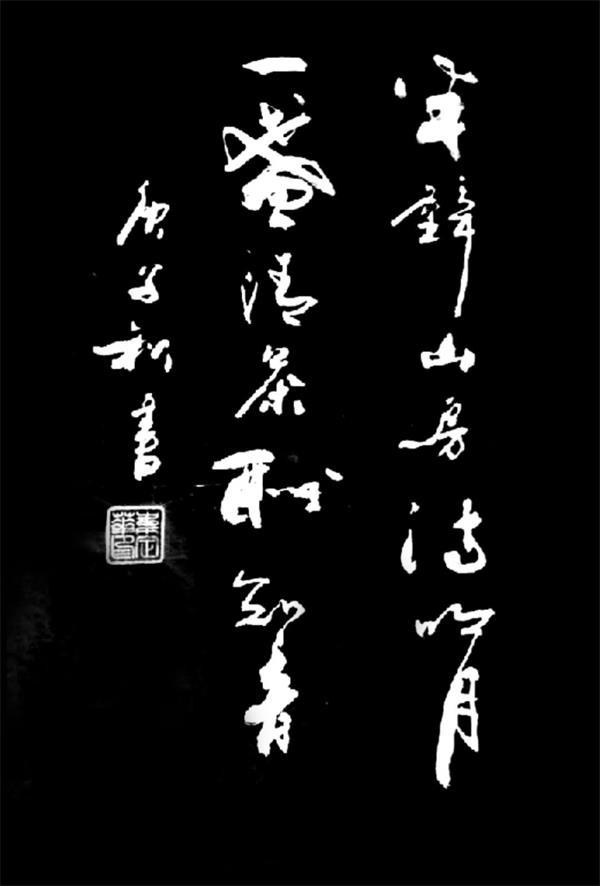 半壁山房待明月
一盏清茶酬知音
庚子秋书